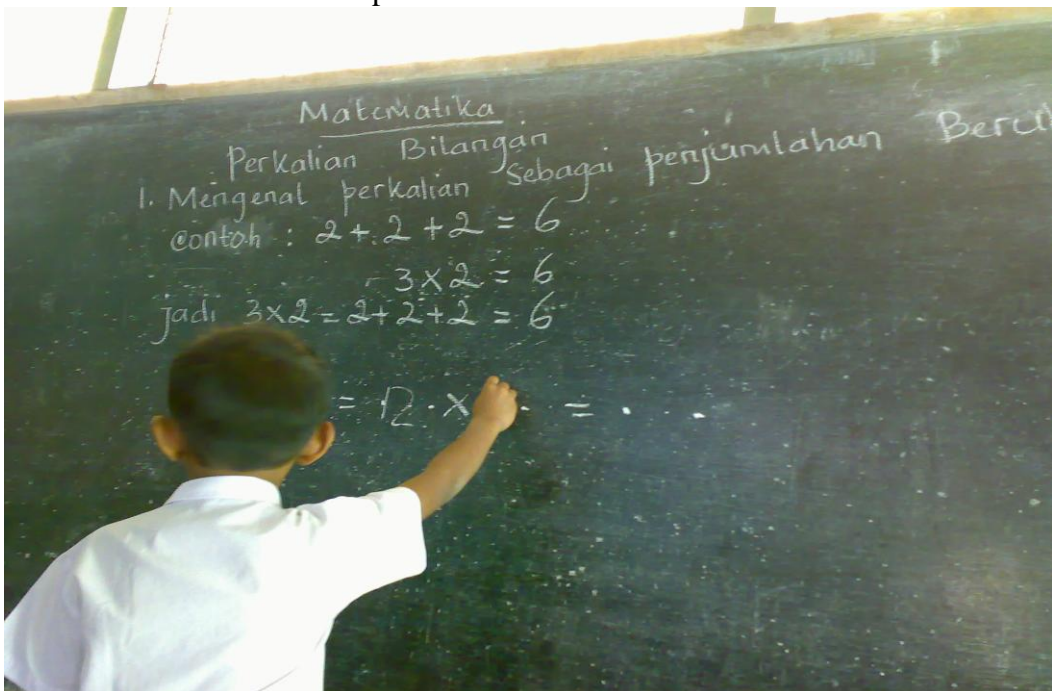 Matematika
Perkalian Bilangan
1. Mengenal perkalian Sebagai penjumlahan
Contoh : 2 + 2 + 2 = 6
3 x 2 = 6
jadi 3x2 = 2+2+2 = 6
= 2 . x . = . .